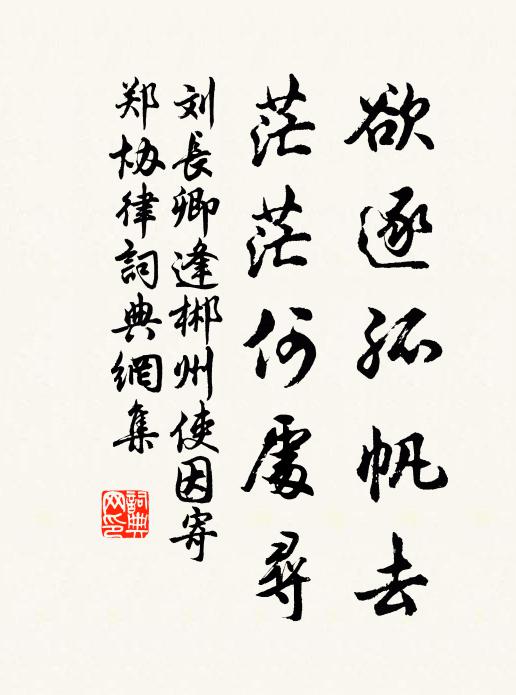 欲逐孤帆去
茫茫何處尋
刘長卿逢郴州使因寄
郑協律詞典網集
詞典
网印